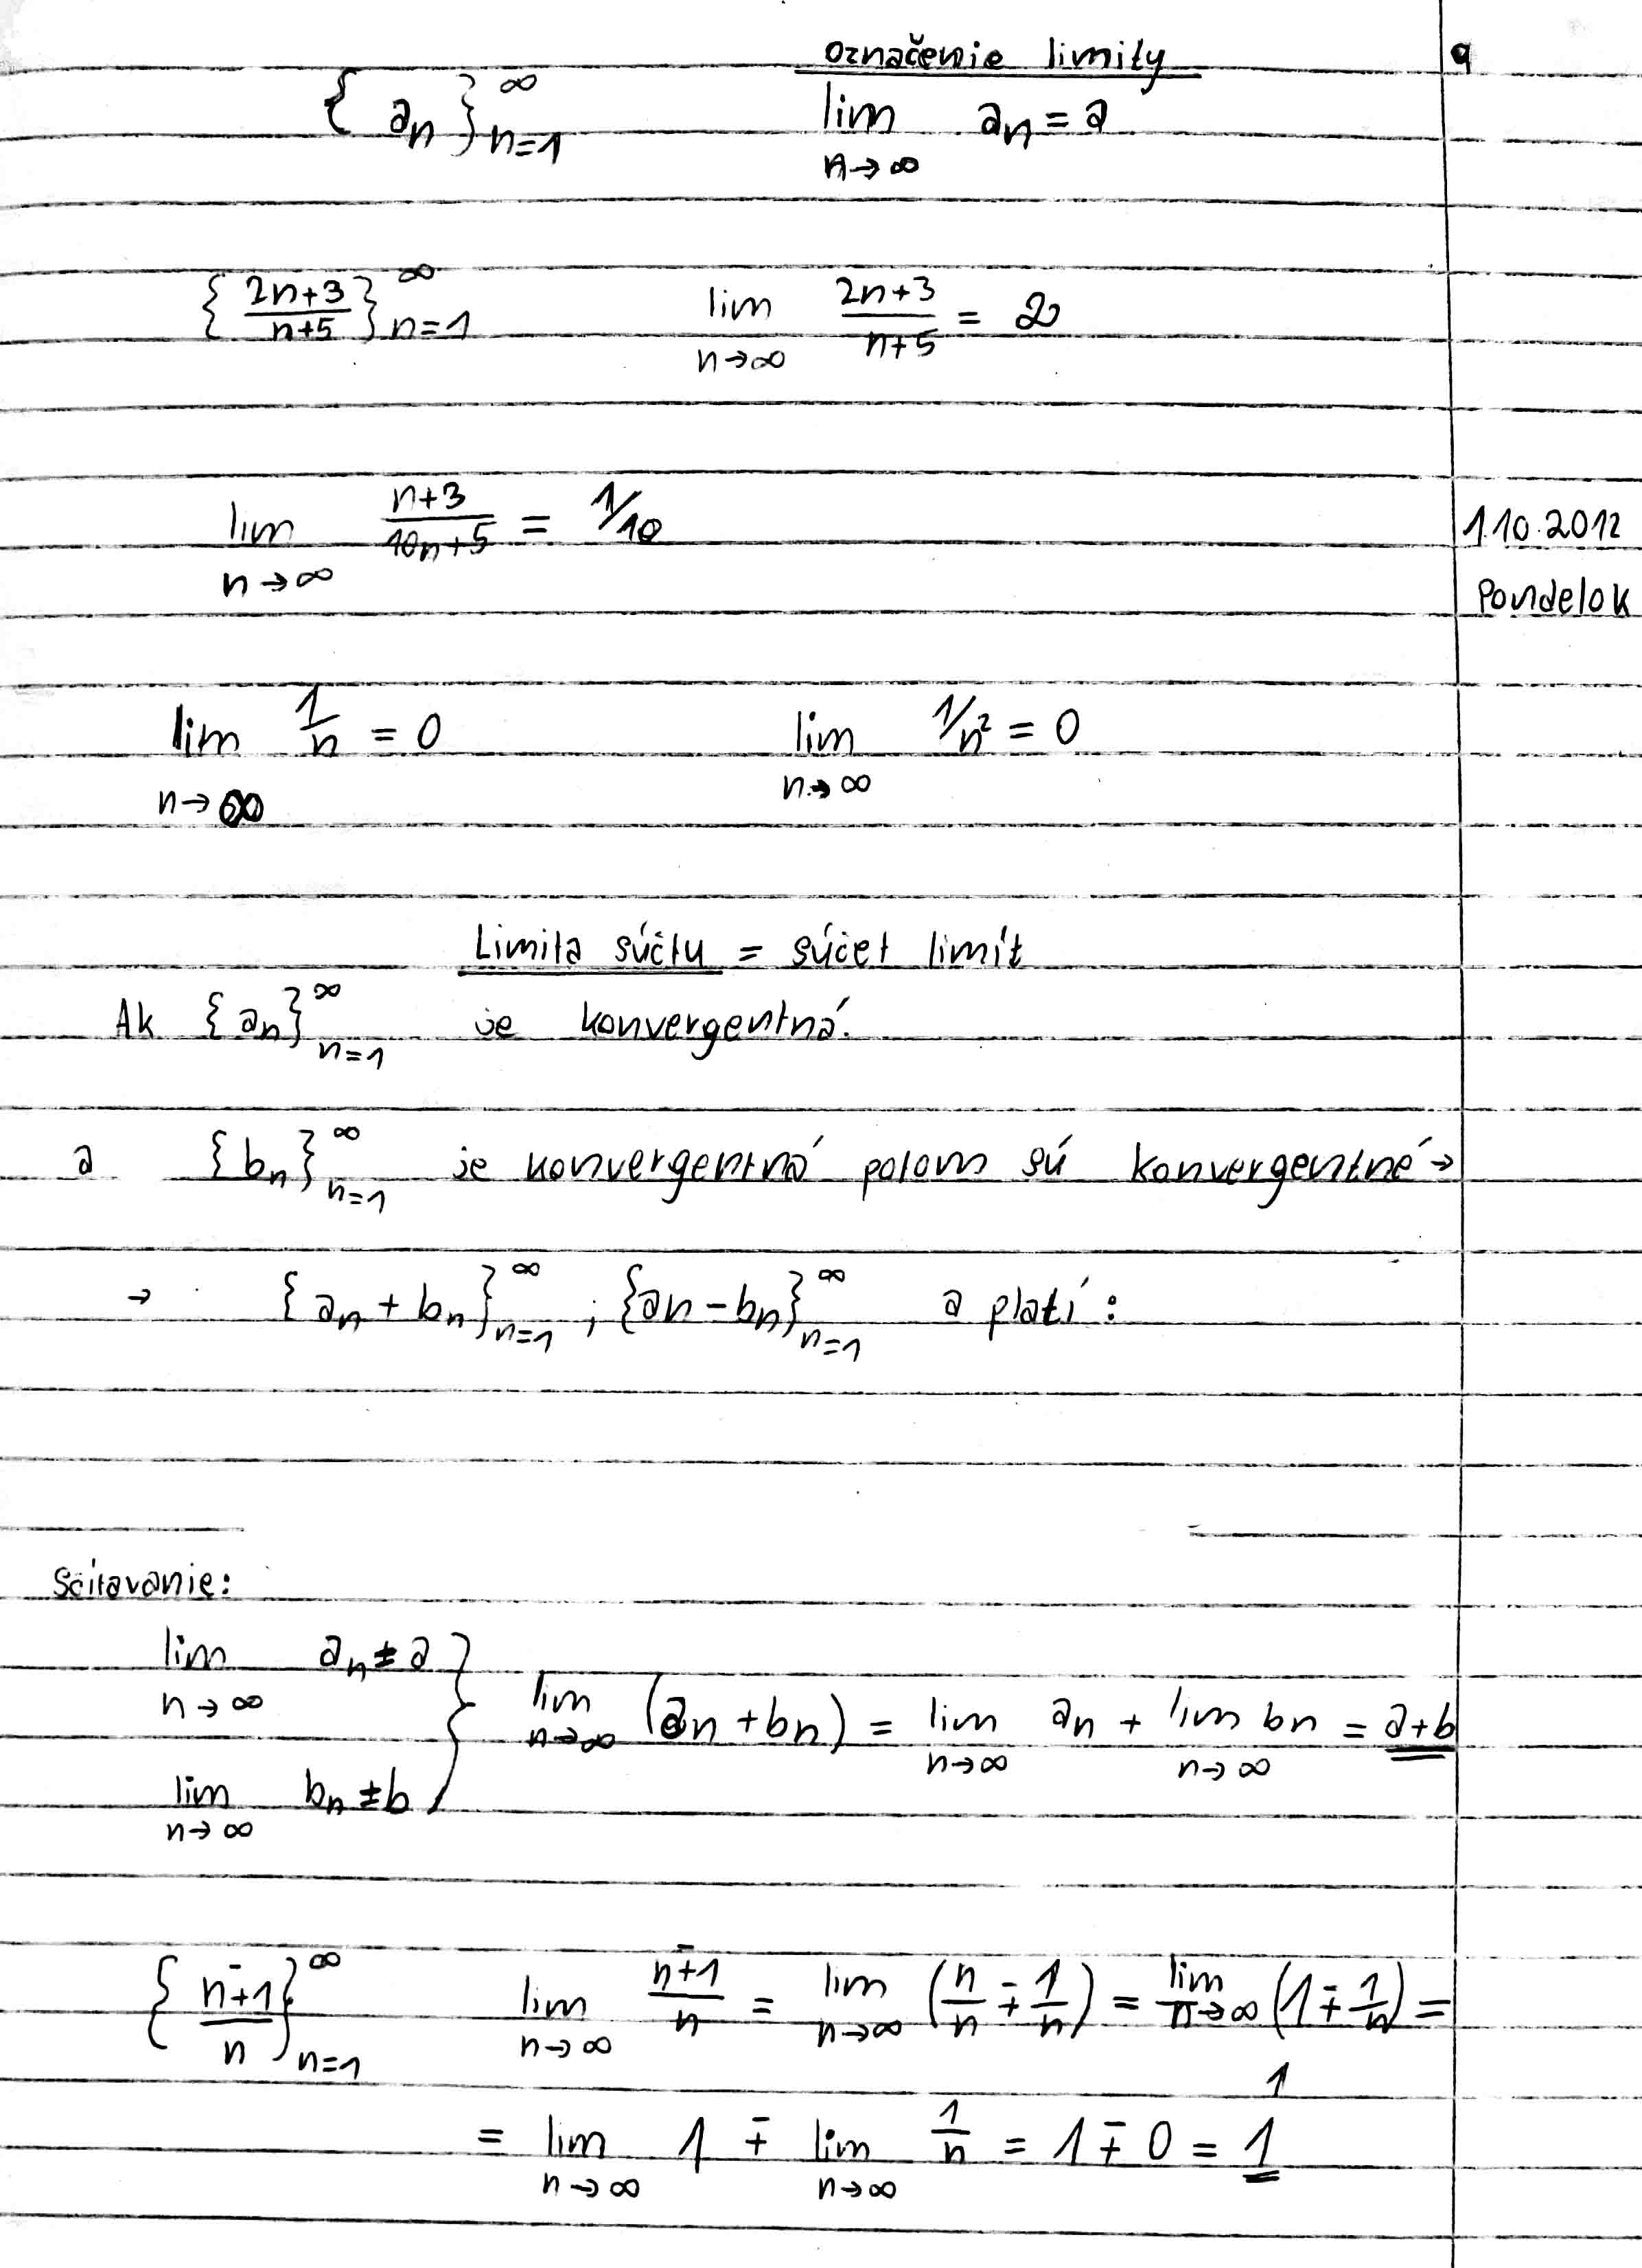 označenie limity 9
{ aₙ }ₙ₌₁^∞ lim aₙ = a
n→∞
{ (2n+3)/(n+5) }ₙ₌₁^∞ lim (2n+3)/(n+5) = 2
n→∞
lim (n+3)/(10n+5) = 1/10 1.10.2012
n→∞ Pondelok
lim 1/n = 0 lim 1/n² = 0
n→∞ n→∞
Limita súčtu = súčet limít
Ak {aₙ}ₙ₌₁^∞ je konvergentná.
a {bₙ}ₙ₌₁^∞ je konvergentná potom sú konvergentné →
→ {aₙ + bₙ}ₙ₌₁^∞ ; {an − bₙ}ₙ₌₁^∞ a platí :
Sčítavanie:
lim aₙ ± a }
n→∞
lim (an + bn) = lim an + lim bn = a+b
n→∞ n→∞ n→∞
lim bₙ ± b
n→∞
{ (n∓1)/n }ₙ₌₁^∞ lim (n∓1)/n = lim (n/n ∓ 1/n) = lim (1 ∓ 1/n) =
n→∞ n→∞ n→∞
1
= lim 1 ∓ lim 1/n = 1 ∓ 0 = 1
n→∞ n→∞